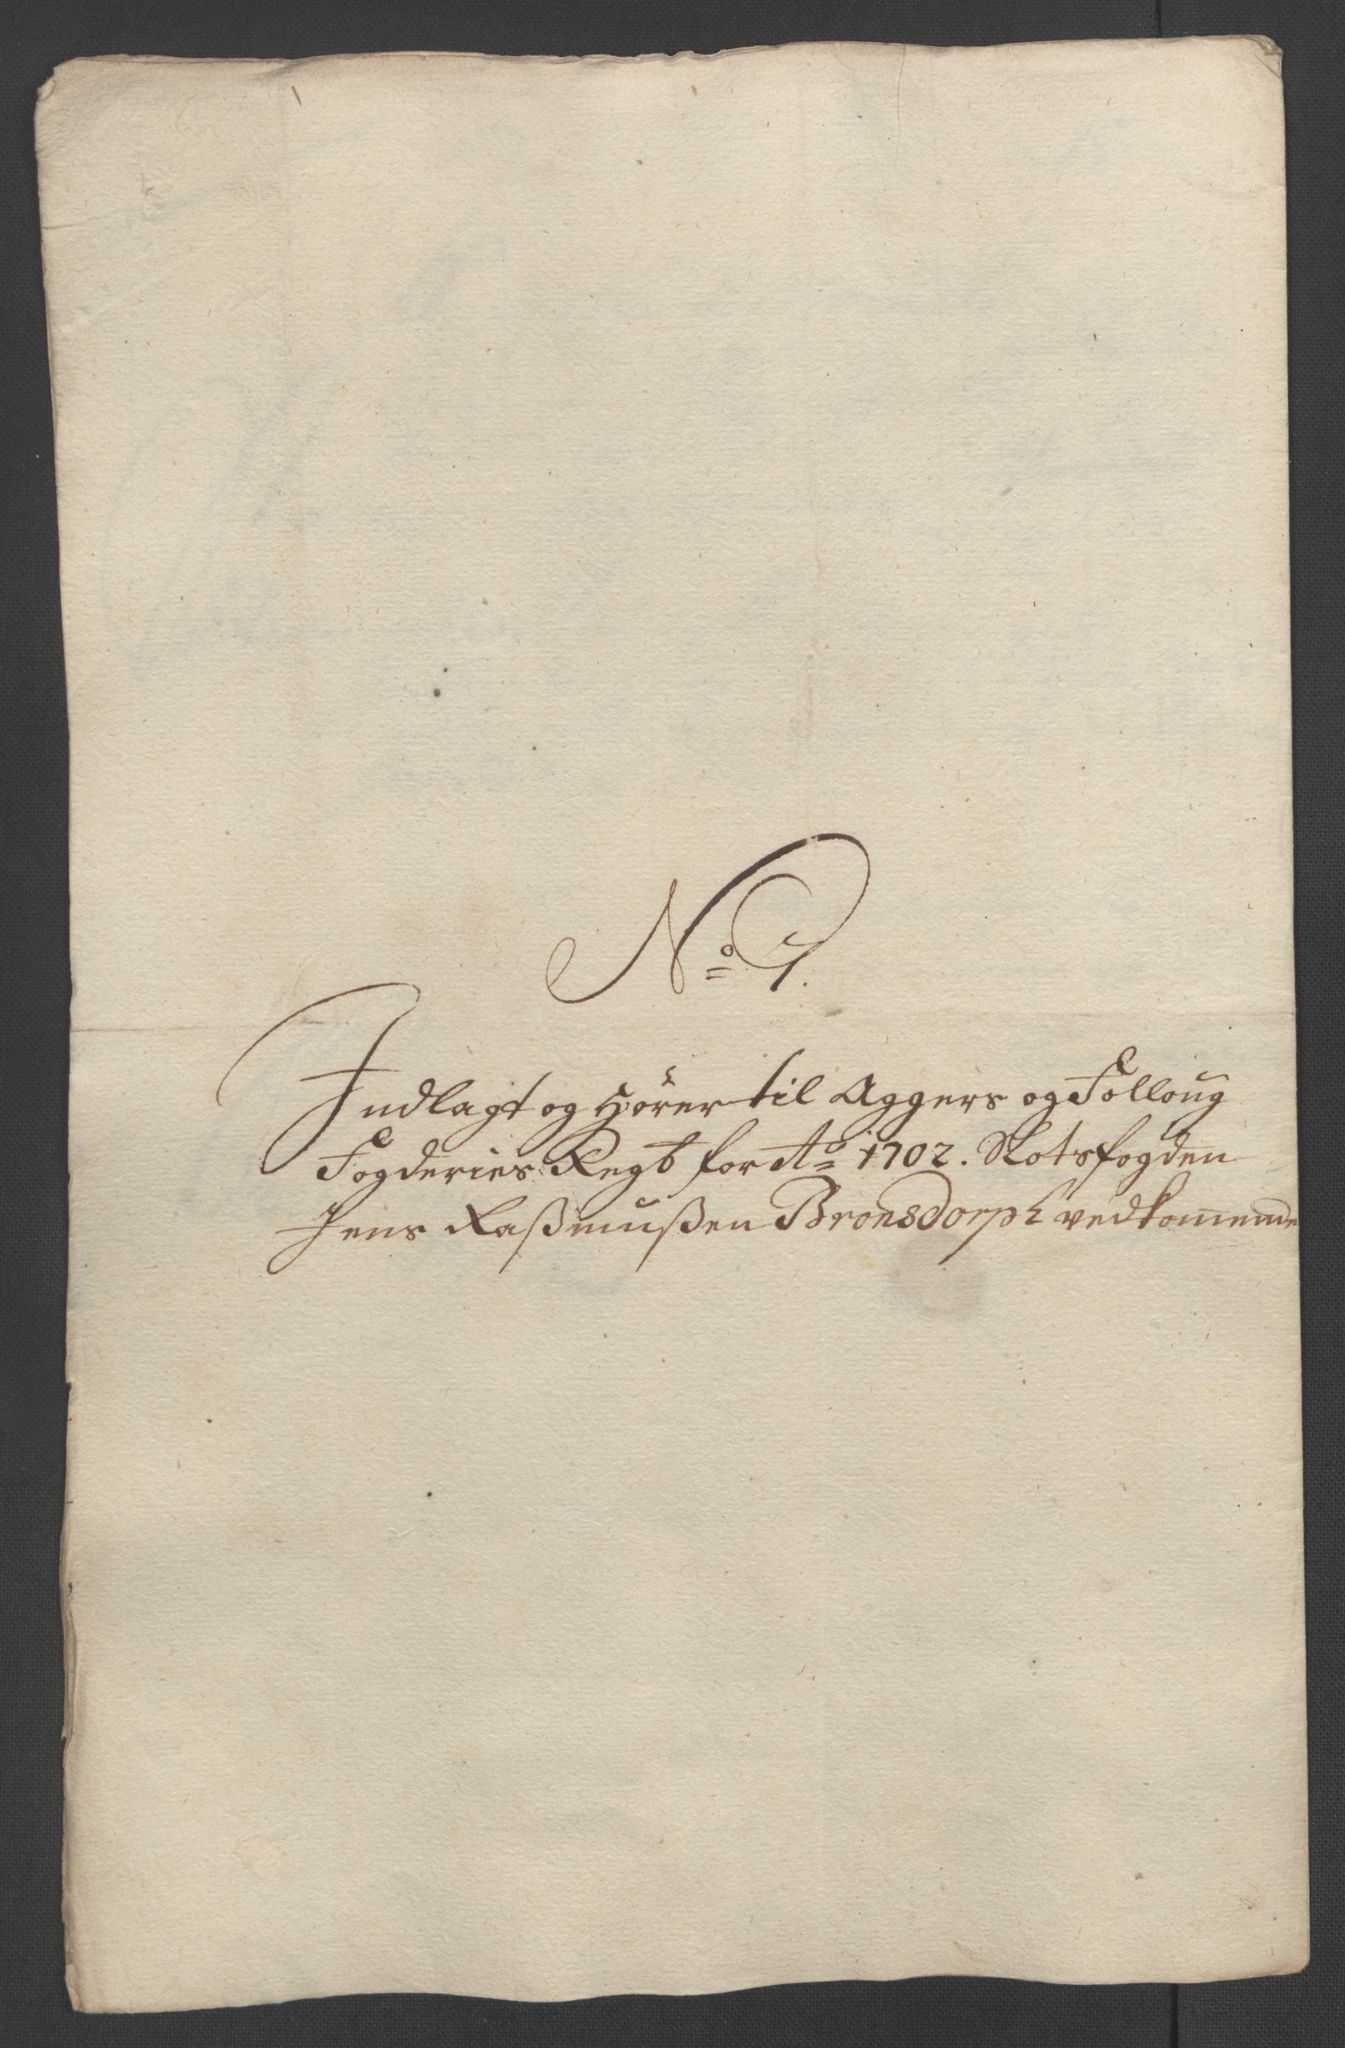 No 7.
Indlagt og Hörer til Aggers og Folloug
Fogderies Regb for Ao 1702. Slotsfogden
Jens Raßmußen Bronsdorph vedkommende